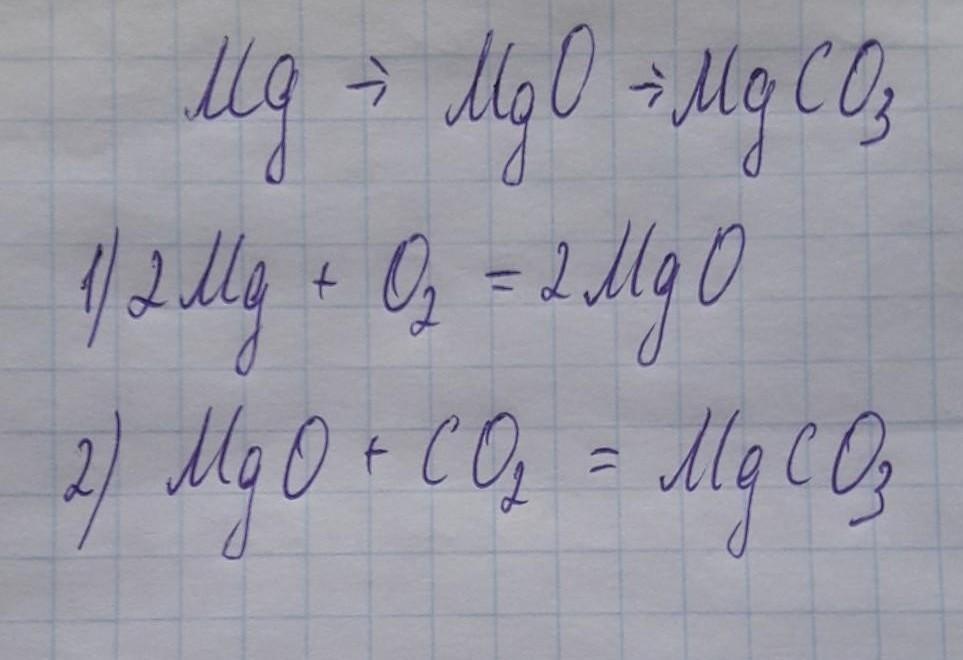 Mg → MgO → MgCO₃
1) 2Mg + O₂ = 2MgO
2) MgO + CO₂ = MgCO₃